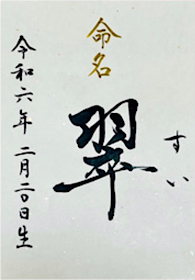 命名
すい
翠
令和六年 二月二〇日生